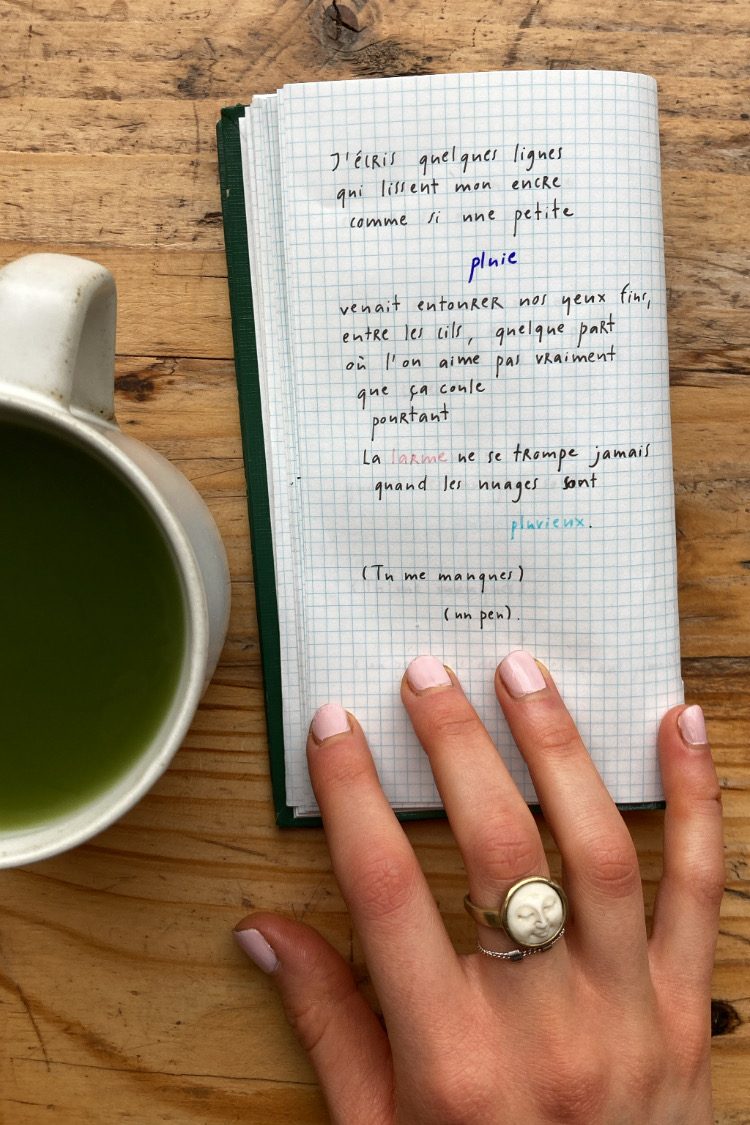 J'écris quelques lignes
qui lissent mon encre
comme si une petite
pluie
venait entourer nos yeux fins,
entre les cils, quelque part
où l'on aime pas vraiment
que ça coule
pourtant
La larme ne se trompe jamais
quand les nuages sont
pluvieux.
(Tu me manques)
(un peu).